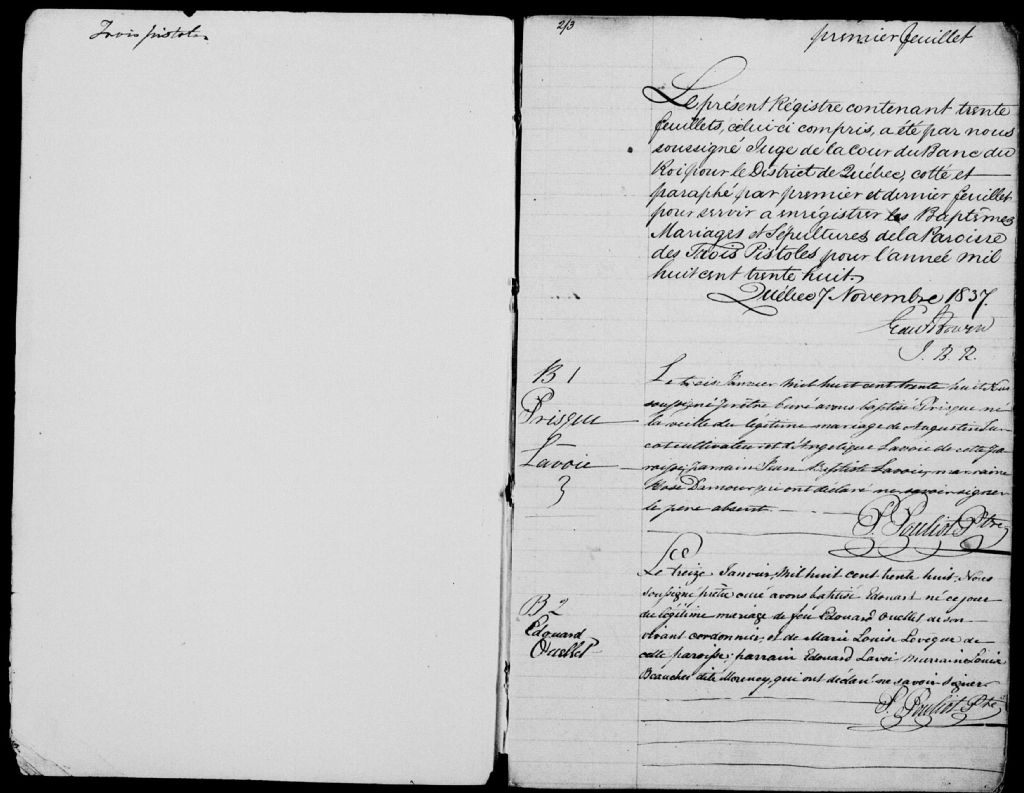 Trois pistoles
213
premier feuillet
Le présent Régistre contenant trente
feuillets, celui-ci compris, a été par nous
soussigné Juge de la Cour du Banc du
Roi pour le District de Québec, cotté et
paraphé par premier et dernier feuillet
pour servir a enrégistrer les Baptêmes
Mariages et Sépultures de la Paroisse
des Trois Pistoles pour l'année mil
huit cent trente huit.
Québec 7 Novembre 1837.
J. B. R.
B 1
Prisque
Lavoie
Le trois Janvier mil huit cent trente huit Nous
soussigné prêtre curé avons baptisé Prisque né
la veille du légitime mariage de Augustin
cultivateur et d'Angelique Lavoie de cette pa-
roisse; parrain Jean Baptiste Lavoie, marraine
Rose Damour qui ont déclaré ne savoir signer
le pere absent.
P. Pouliot Ptre
B 2
Edouard
Ouellet
Le treize Janvier, Mil huit cent trente huit. Nous
soussigné prêtre curé avons batisé Edouard né ce jour
du légitime mariage de feu Edouard Ouellet de son
vivant cordonnier, et de Marie Louise Leveque de
cette paroisse; parrain Edouard Lavoi marraine Louise
dite Morency, qui ont déclaré ne savoir signer
P. Pouliot Ptre